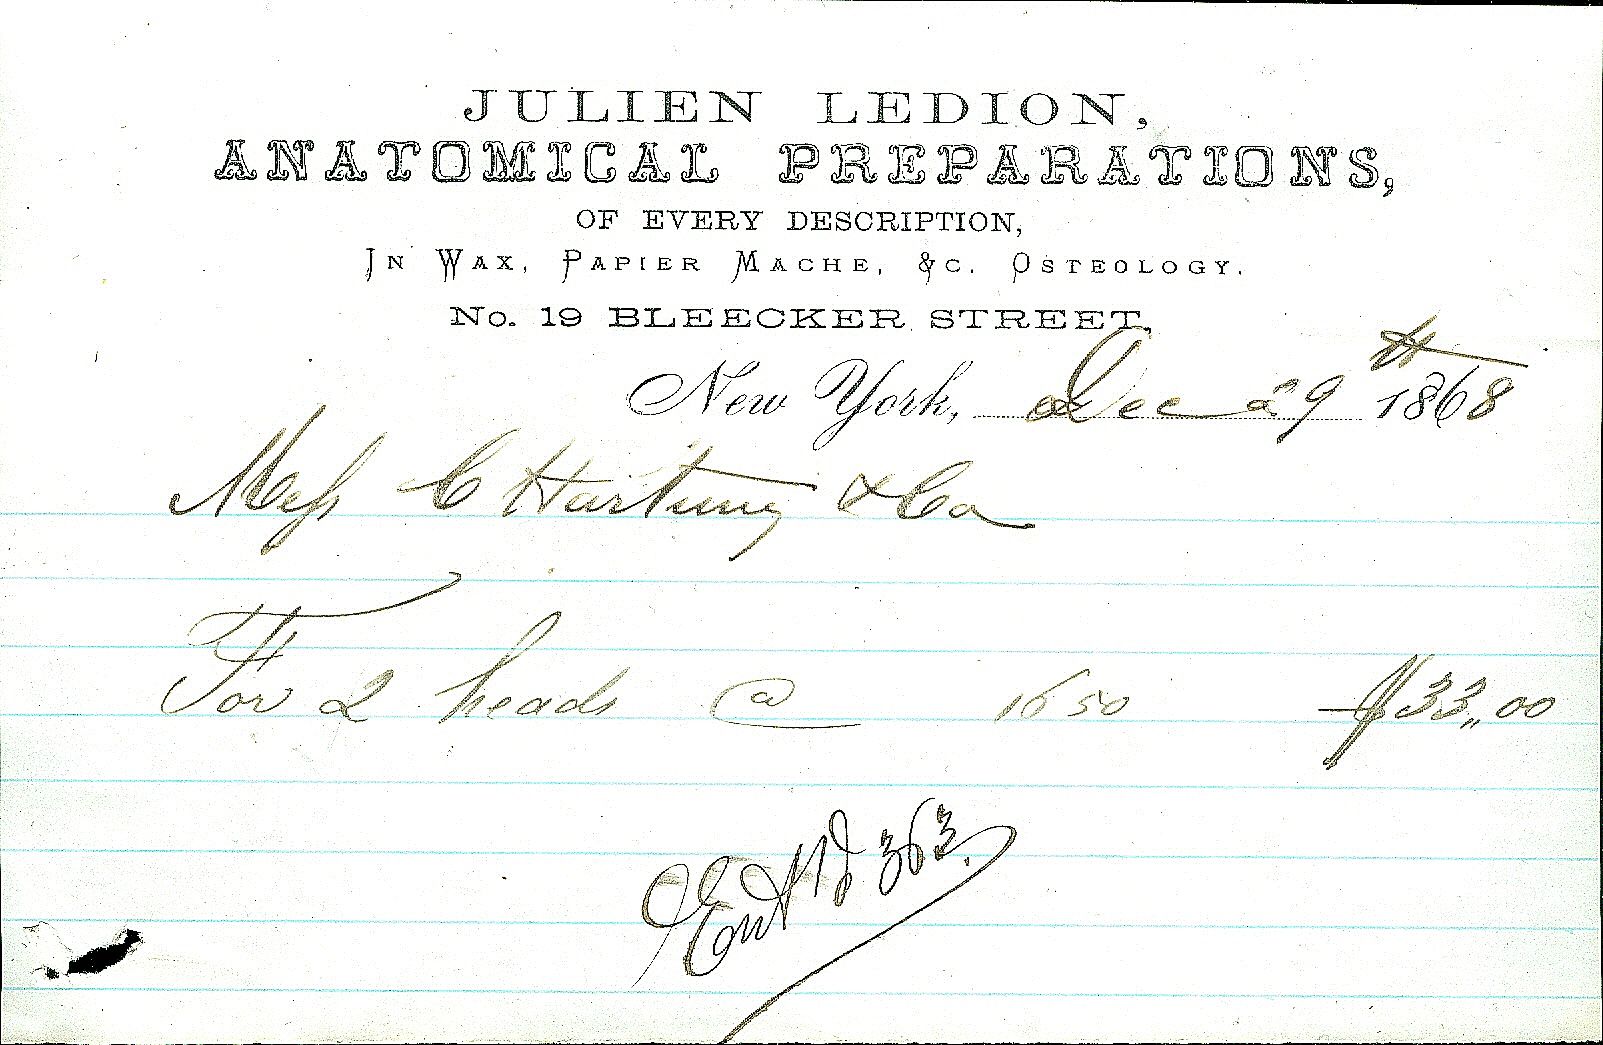 JULIEN LEDION,
ANATOMICAL PREPARATIONS,
OF EVERY DESCRIPTION,
IN WAX, PAPIER MACHE, &C. OSTEOLOGY.
No. 19 BLEECKER STREET,
New York, Dec 29th 1868
Mess C Hartung & Co
For 2 heads @ 16 50 $33,,00
363.